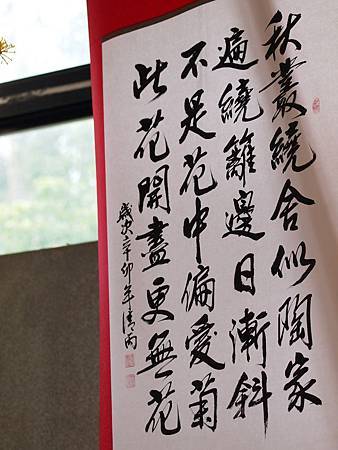 秋叢繞舍似陶家
遍繞籬邊日漸斜
不是花中偏愛菊
此花開盡更無花
歲次辛卯年清丙